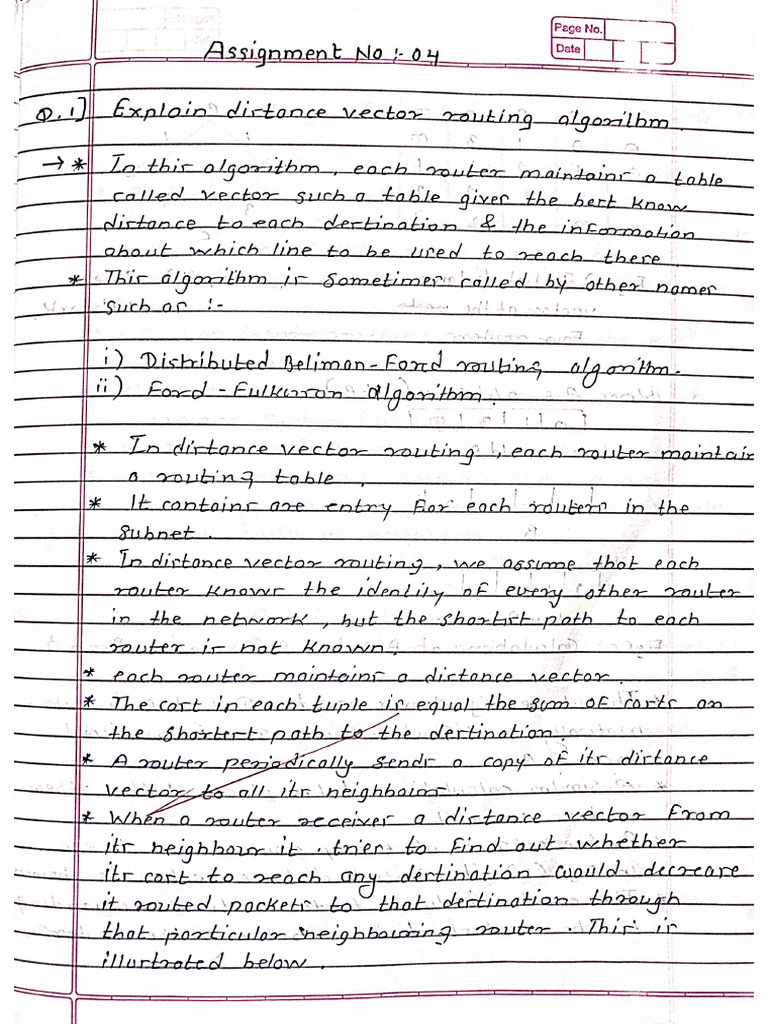 Page No.
Date
Assignment No :- 04
Q.1] Explain distance vector routing algorithm.
→ * In this algorithm, each router maintains a table
called vector such a table gives the best know
distance to each destination & the information
about which line to be used to reach there
* This algorithm is sometimes called by other names
such as :-
i) Distributed Bellman-Ford routing algorithm.
ii) Ford-Fulkurson algorithm.
* In distance vector routing, each router maintain
a routing table.
* It contains are entry for each routers in the
subnet.
* In distance vector routing, we assume that each
router knows the identity of every other router
in the network, but the shortist path to each
router is not known.
* each router maintains a distance vector.
* The cost in each tuple is equal the sum of costs on
the shortest path to the destination.
* A router periodically sends a copy of its distance
vector to all its neighbours
* When a router receives a distance vector from
its neighbour it tries to find out whether
its cost to reach any destination would decrease
it routed packets to that destination through
that particular neighbouring router. This is
illustrated below.